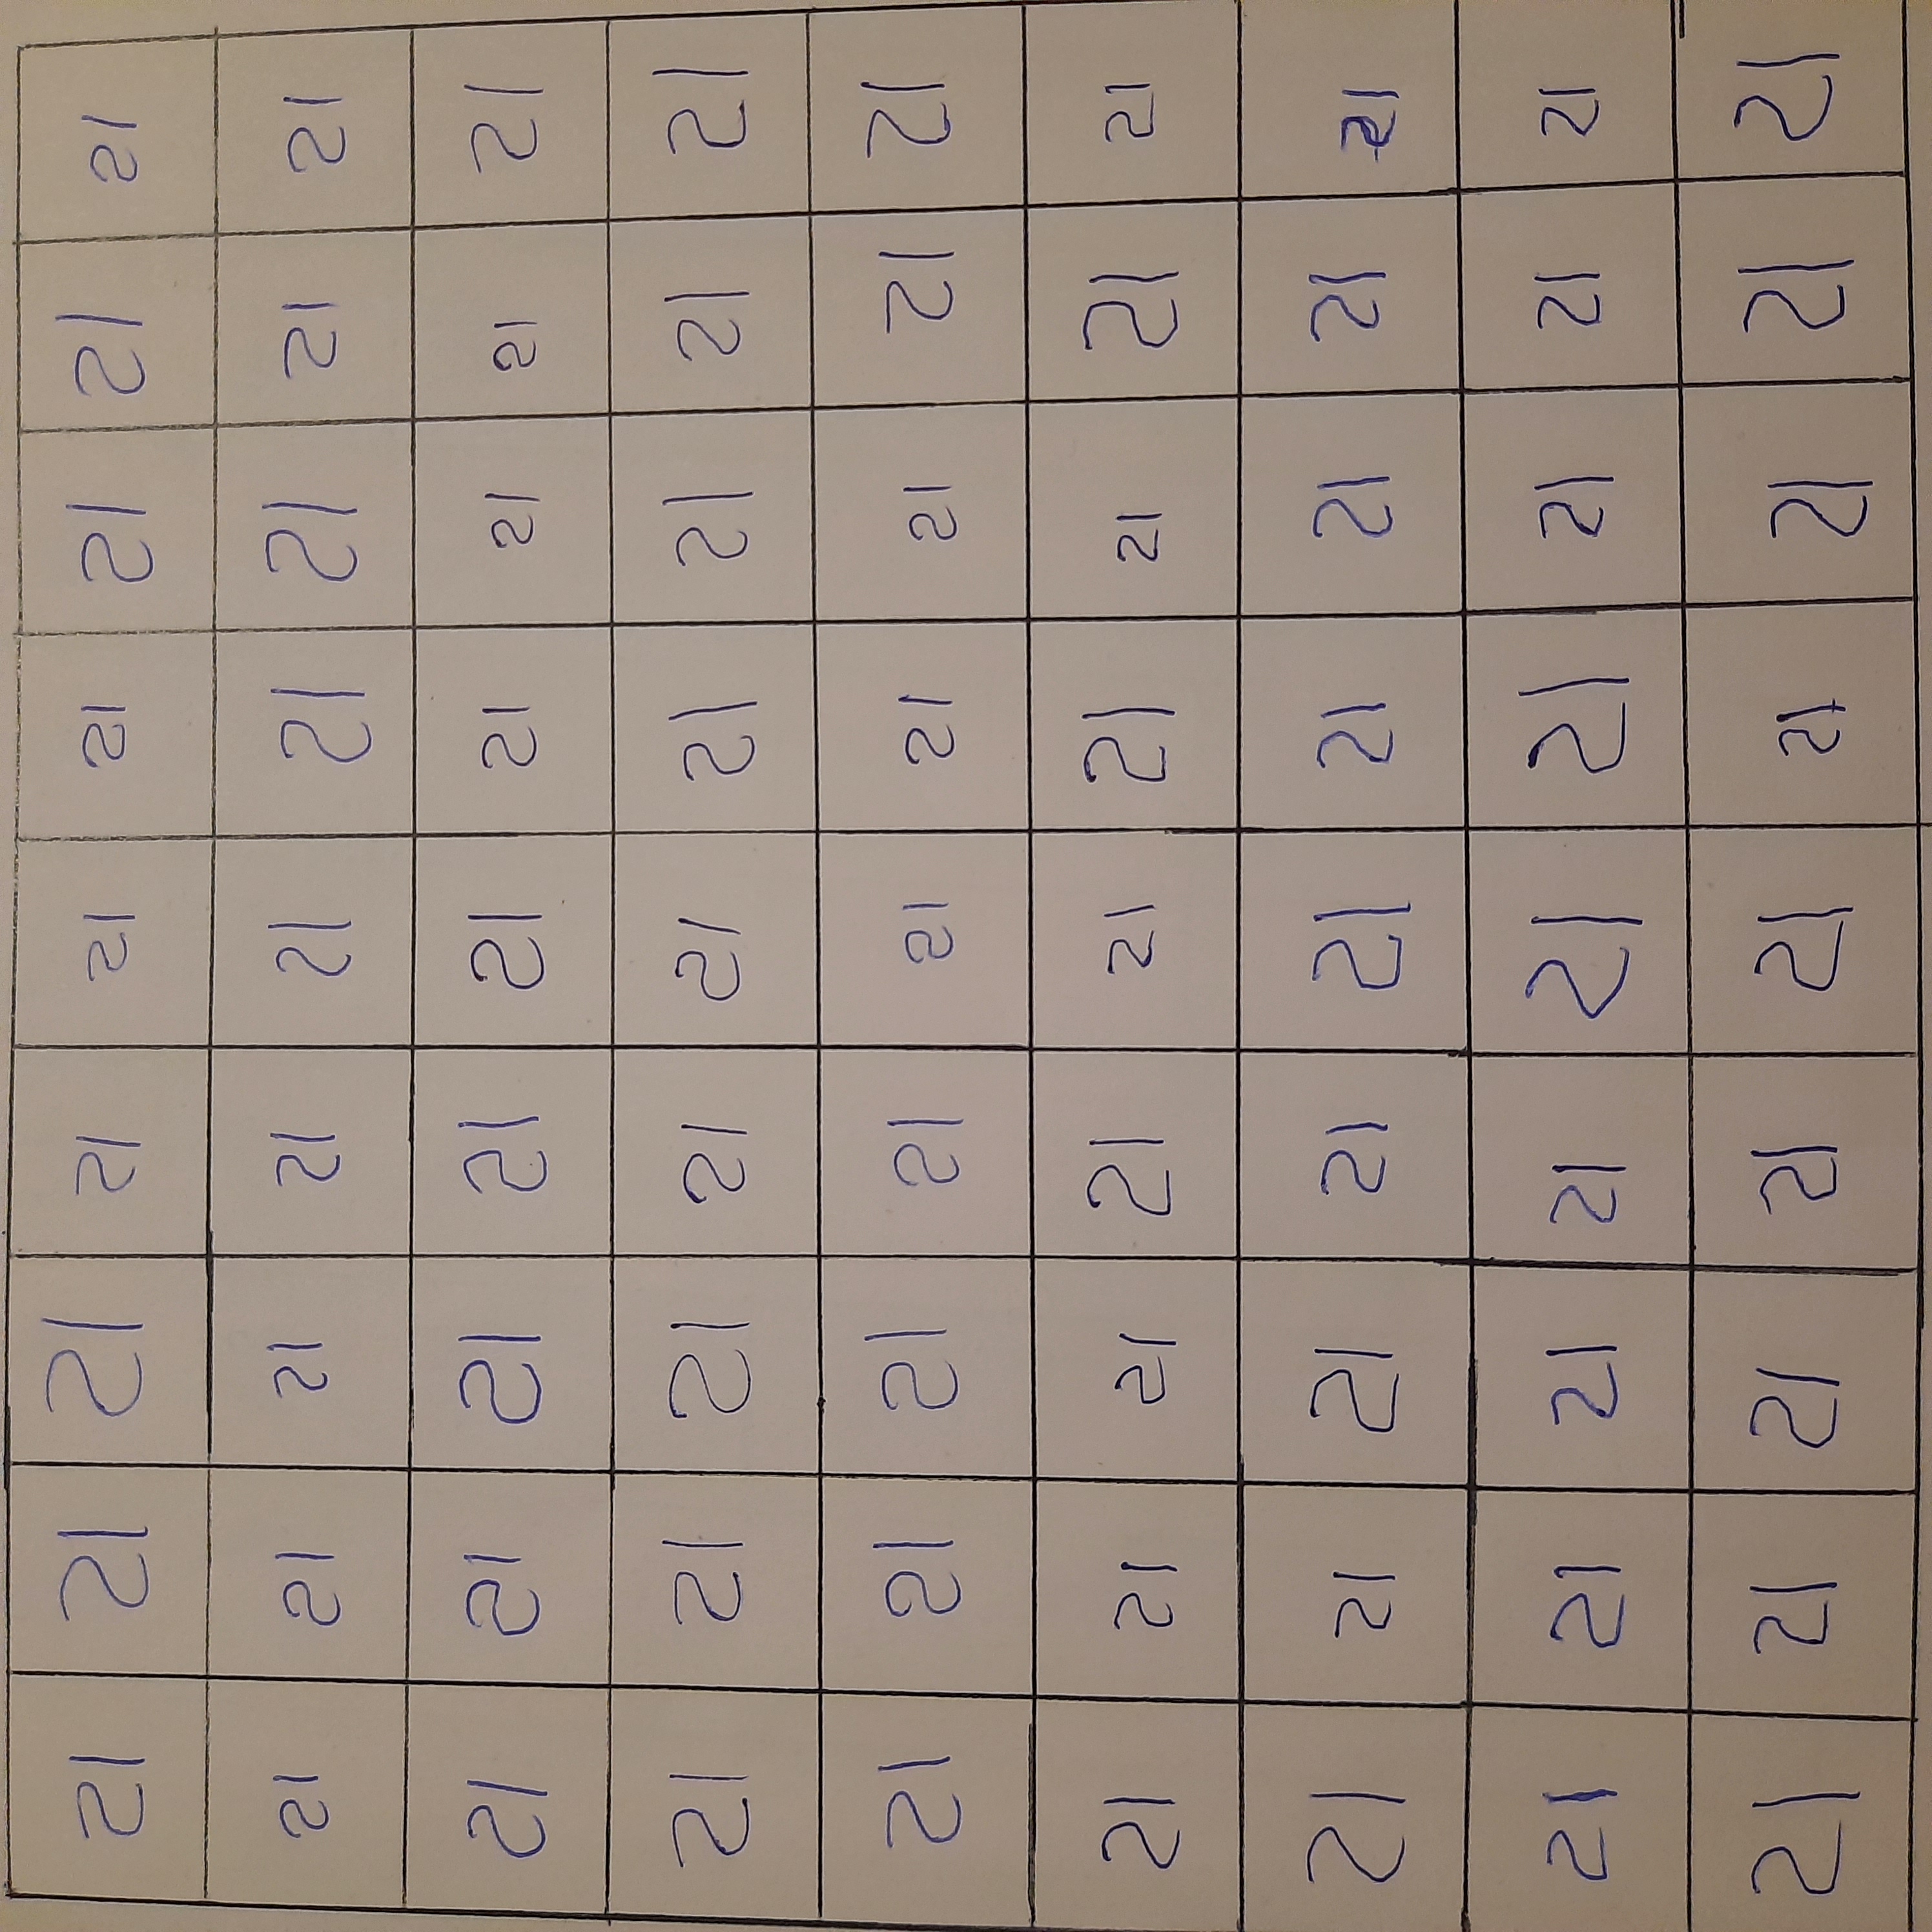 ટા ટા ટા ટા ટા ટા ટા ટા ટા
ટા ટા ટા ટા ટા ટા ટા ટા ટા
ટા ટા ટા ટા ટા ટા ટા ટા ટા
ટા ટા ટા ટા ટા ટા ટા ટા ટા
ટા ટા ટા ટા ટા ટા ટા ટા ટા
ટા ટા ટા ટા ટા ટા ટા ટા ટા
ટા ટા ટા ટા ટા ટા ટા ટા ટા
ટા ટા ટા ટા ટા ટા ટા ટા ટા
ટા ટા ટા ટા ટા ટા ટા ટા ટા